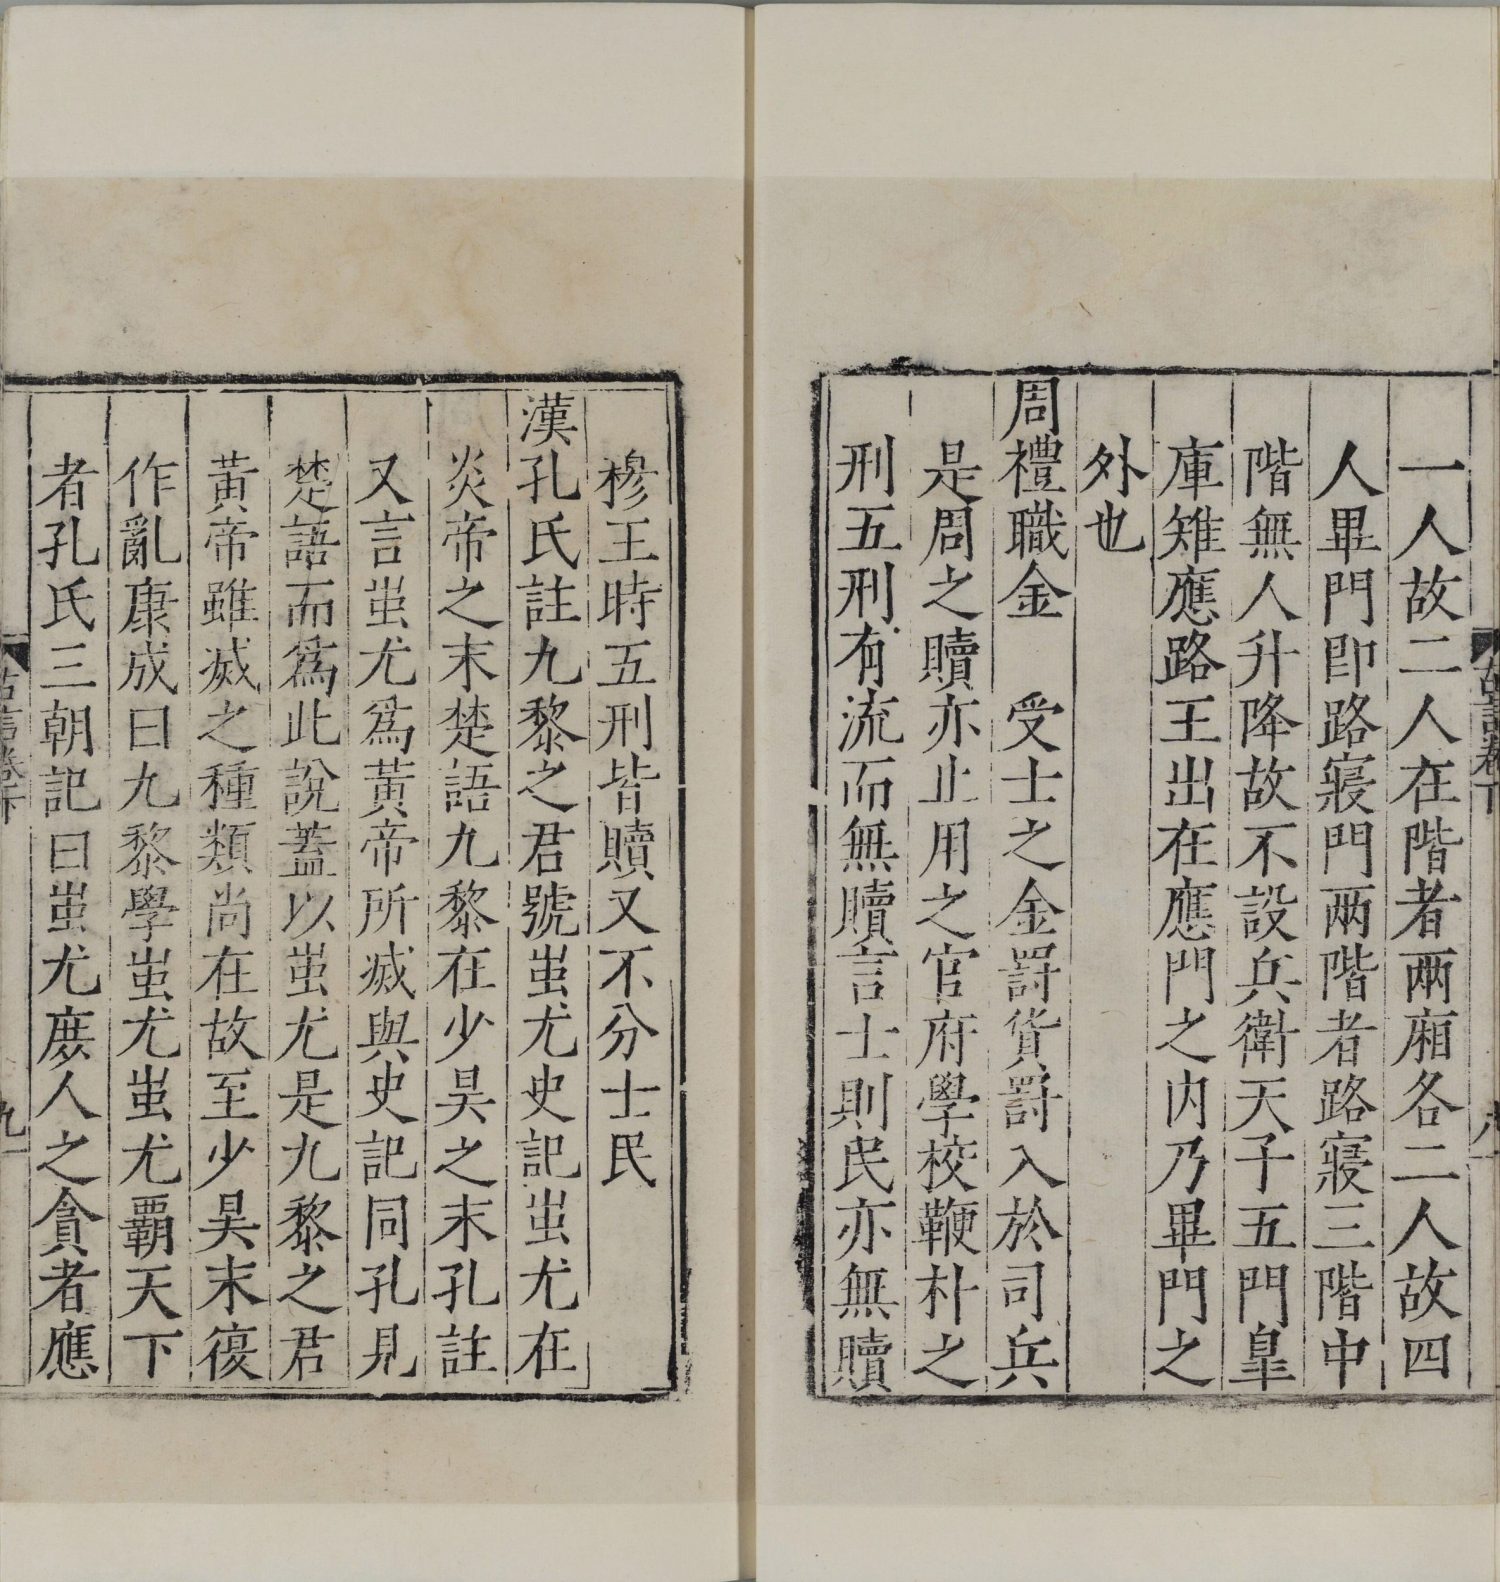 一人故二人在階者两廂各二人故四
人畢門即路寢門两階者路寢三階中
階無人升降故不設兵衛天子五門臯
庫雉應路王出在應門之内乃畢門之
外也
周禮職金　受士之金罰貨罰入於司兵
是周之贖亦止用之官府學校鞭朴之
刑五刑有流而無贖言士則民亦無贖
穆王時五刑皆贖又不分士民
漢孔氏註九黎之君號蚩尤史記蚩尤在
炎帝之末楚語九黎在少昊之末孔註
又言蚩尤爲黃帝所滅與史記同孔見
楚語而爲此說蓋以蚩尤是九黎之君
黃帝雖滅之種類尚在故至少昊末復
作亂康成曰九黎學蚩尤蚩尤覇天下
者孔氏三朝記曰蚩尤庻人之貪者應
卷下
九